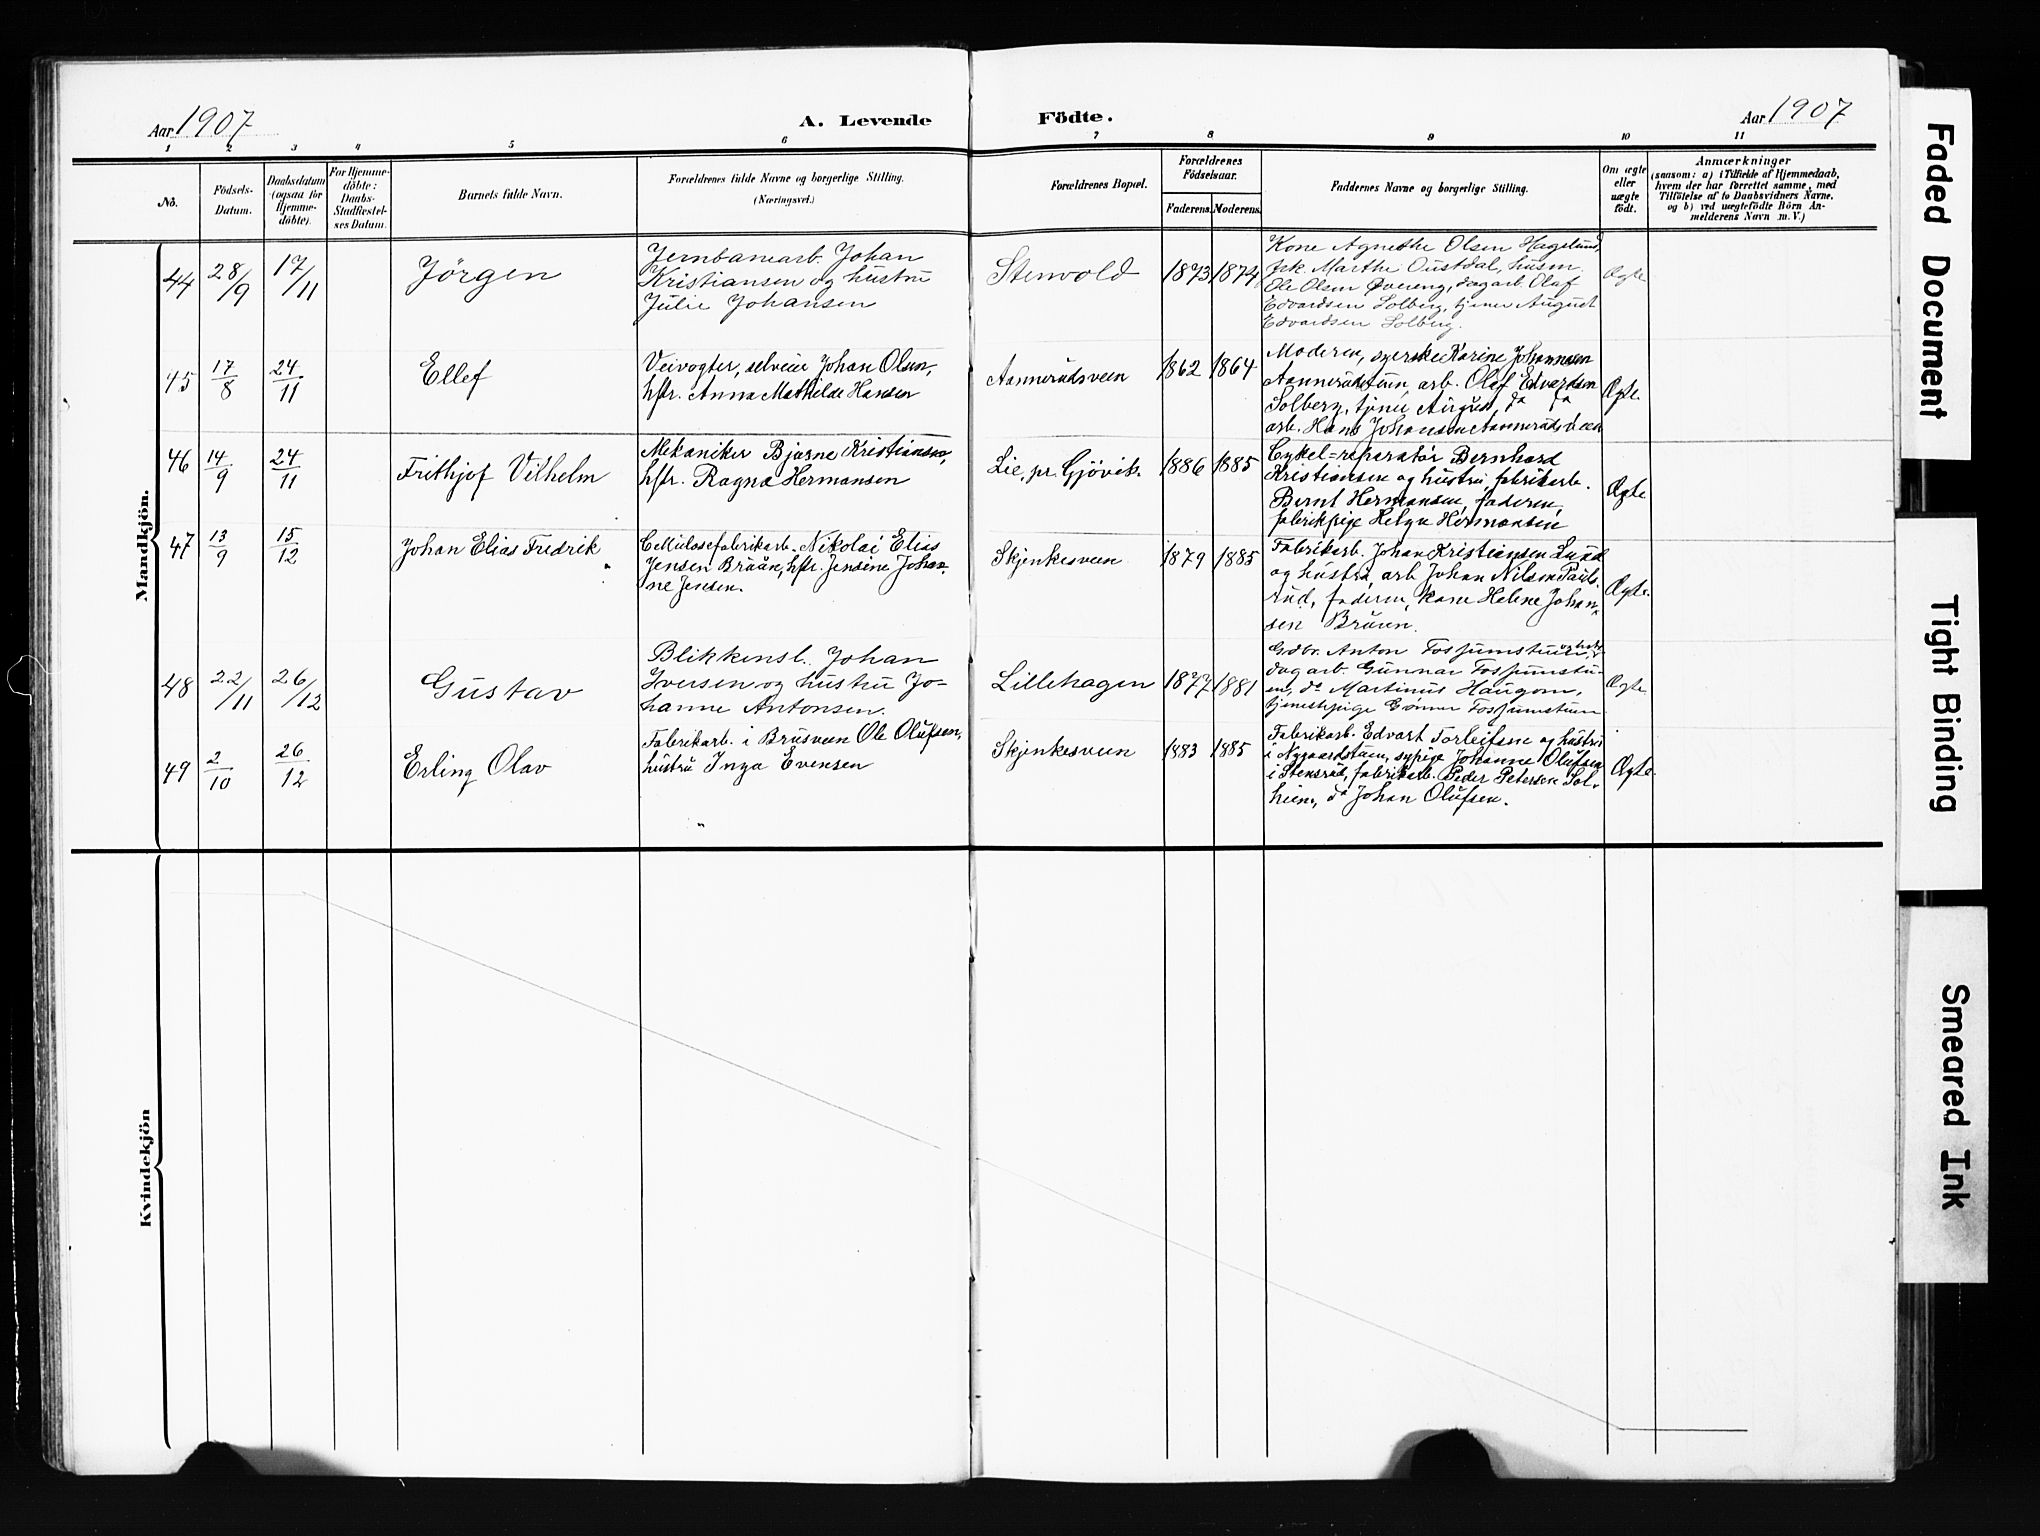 Aar 1907
A. Levende
Födte.
Aar 1907
1 2 3 4 5 6 7 8 9 10 11
No.
Födsels-
Datum.
Daabsdatum
(ogsaa for
Hjemme-
döbte).
For Hjemme-
döbte:
Daabs-
Stadfæstel-
ses Datum.
Barnets fulde Navn.
Forældrenes fulde Navne og borgerlige Stilling.
(Næringsvei.)
Forældrenes Bopæl.
Forældrenes
Födselsaar.
Faderens. Moderens.
Faddernes Navne og borgerlige Stilling.
Om ægte
eller
uægte
födt.
Anmærkninger
(saasom: a) i Tilfælde af Hjemmedaab,
hvem der har forrettet samme, med
Tilföielse af to Daabsvidners Navne,
og b) ved uægtefödte Börn An-
melderens Navn m. V.)
Mandkjön.
44 28/9 17/11 Jörgen
Jernbanearb. Johan
Kristiansen og hustru
Julie Johansen
Stenvold 1873 1874
Kone Agnethe Olsen Hagelund,
frk. Marthe Oustdal, husm.
Ole Olsen Øvereng, dagarb. Olaf
Edvardsen Solberg, tjener August
Edvardsen Solberg.
Ægte
45 17/8 24/11 Ellef
Veivogter, selveier Johan Olsen,
hstr. Anna Mathilde Hansen
Aannerudsveen 1862 1864
Moderen, syerske Karine Johannesen
arb. Olaf Edvardsen
Solberg, August, do do
arb. Hans Johansen Aannerudsveen
Ægte.
46 14/9 24/11 Frithjof Vilhelm
Mekaniker Bjarne Kristiansen,
hstr. Ragna Hermansen
Lie, pr. Gjövik. 1886 1885
Cykel=reparatör Bernhard
Kristiansen og hustru, fabrikarb.
Bernt Hermansen, faderen,
fabrikpige Helga Hermansen
Ægte
47 13/9 15/12 Johan Elias Fredrik
Cellulosefabrikarb. Nikolai Elias
Jensen Bruun, hstr. Jensine Johan-
ne Jensen.
Skjenkesveen 1879 1885
Fabrikarb. Johan Kristiansen Lund
og hustru, arb. Johan Nilsen Pauls-
rud, faderen, kone Helene Johan-
sen Bruun.
Ægte.
48 22/11 26/12 Gustav
Blikkensl. Johan
Iversen og hustru Jo-
hanne Antonsen.
Lillehagen 1877 1881
Gdbr. Anton Fossumstuen,
dagarb. Gunnar Fossumstu-
en, do Martinus Haugom,
tjenestepige Fossumstuen
Ægte
49 2/10 26/12 Erling Olav
Fabrikarb. i Brusveen Ole Olufsen,
hustru Inga Evensen
Skjenkesveen 1883 1885
Fabrikarb. Edvart Torleifsen og hustru
i Nygaardstuen, sypige Johanne Olufsen
i Stensrud, fabrikarb. Peder Petersen Sol-
heim, do Johan Olufsen.
Ægte.
Kvindekjön
Faded Document
Tight Binding
Smeared Ink